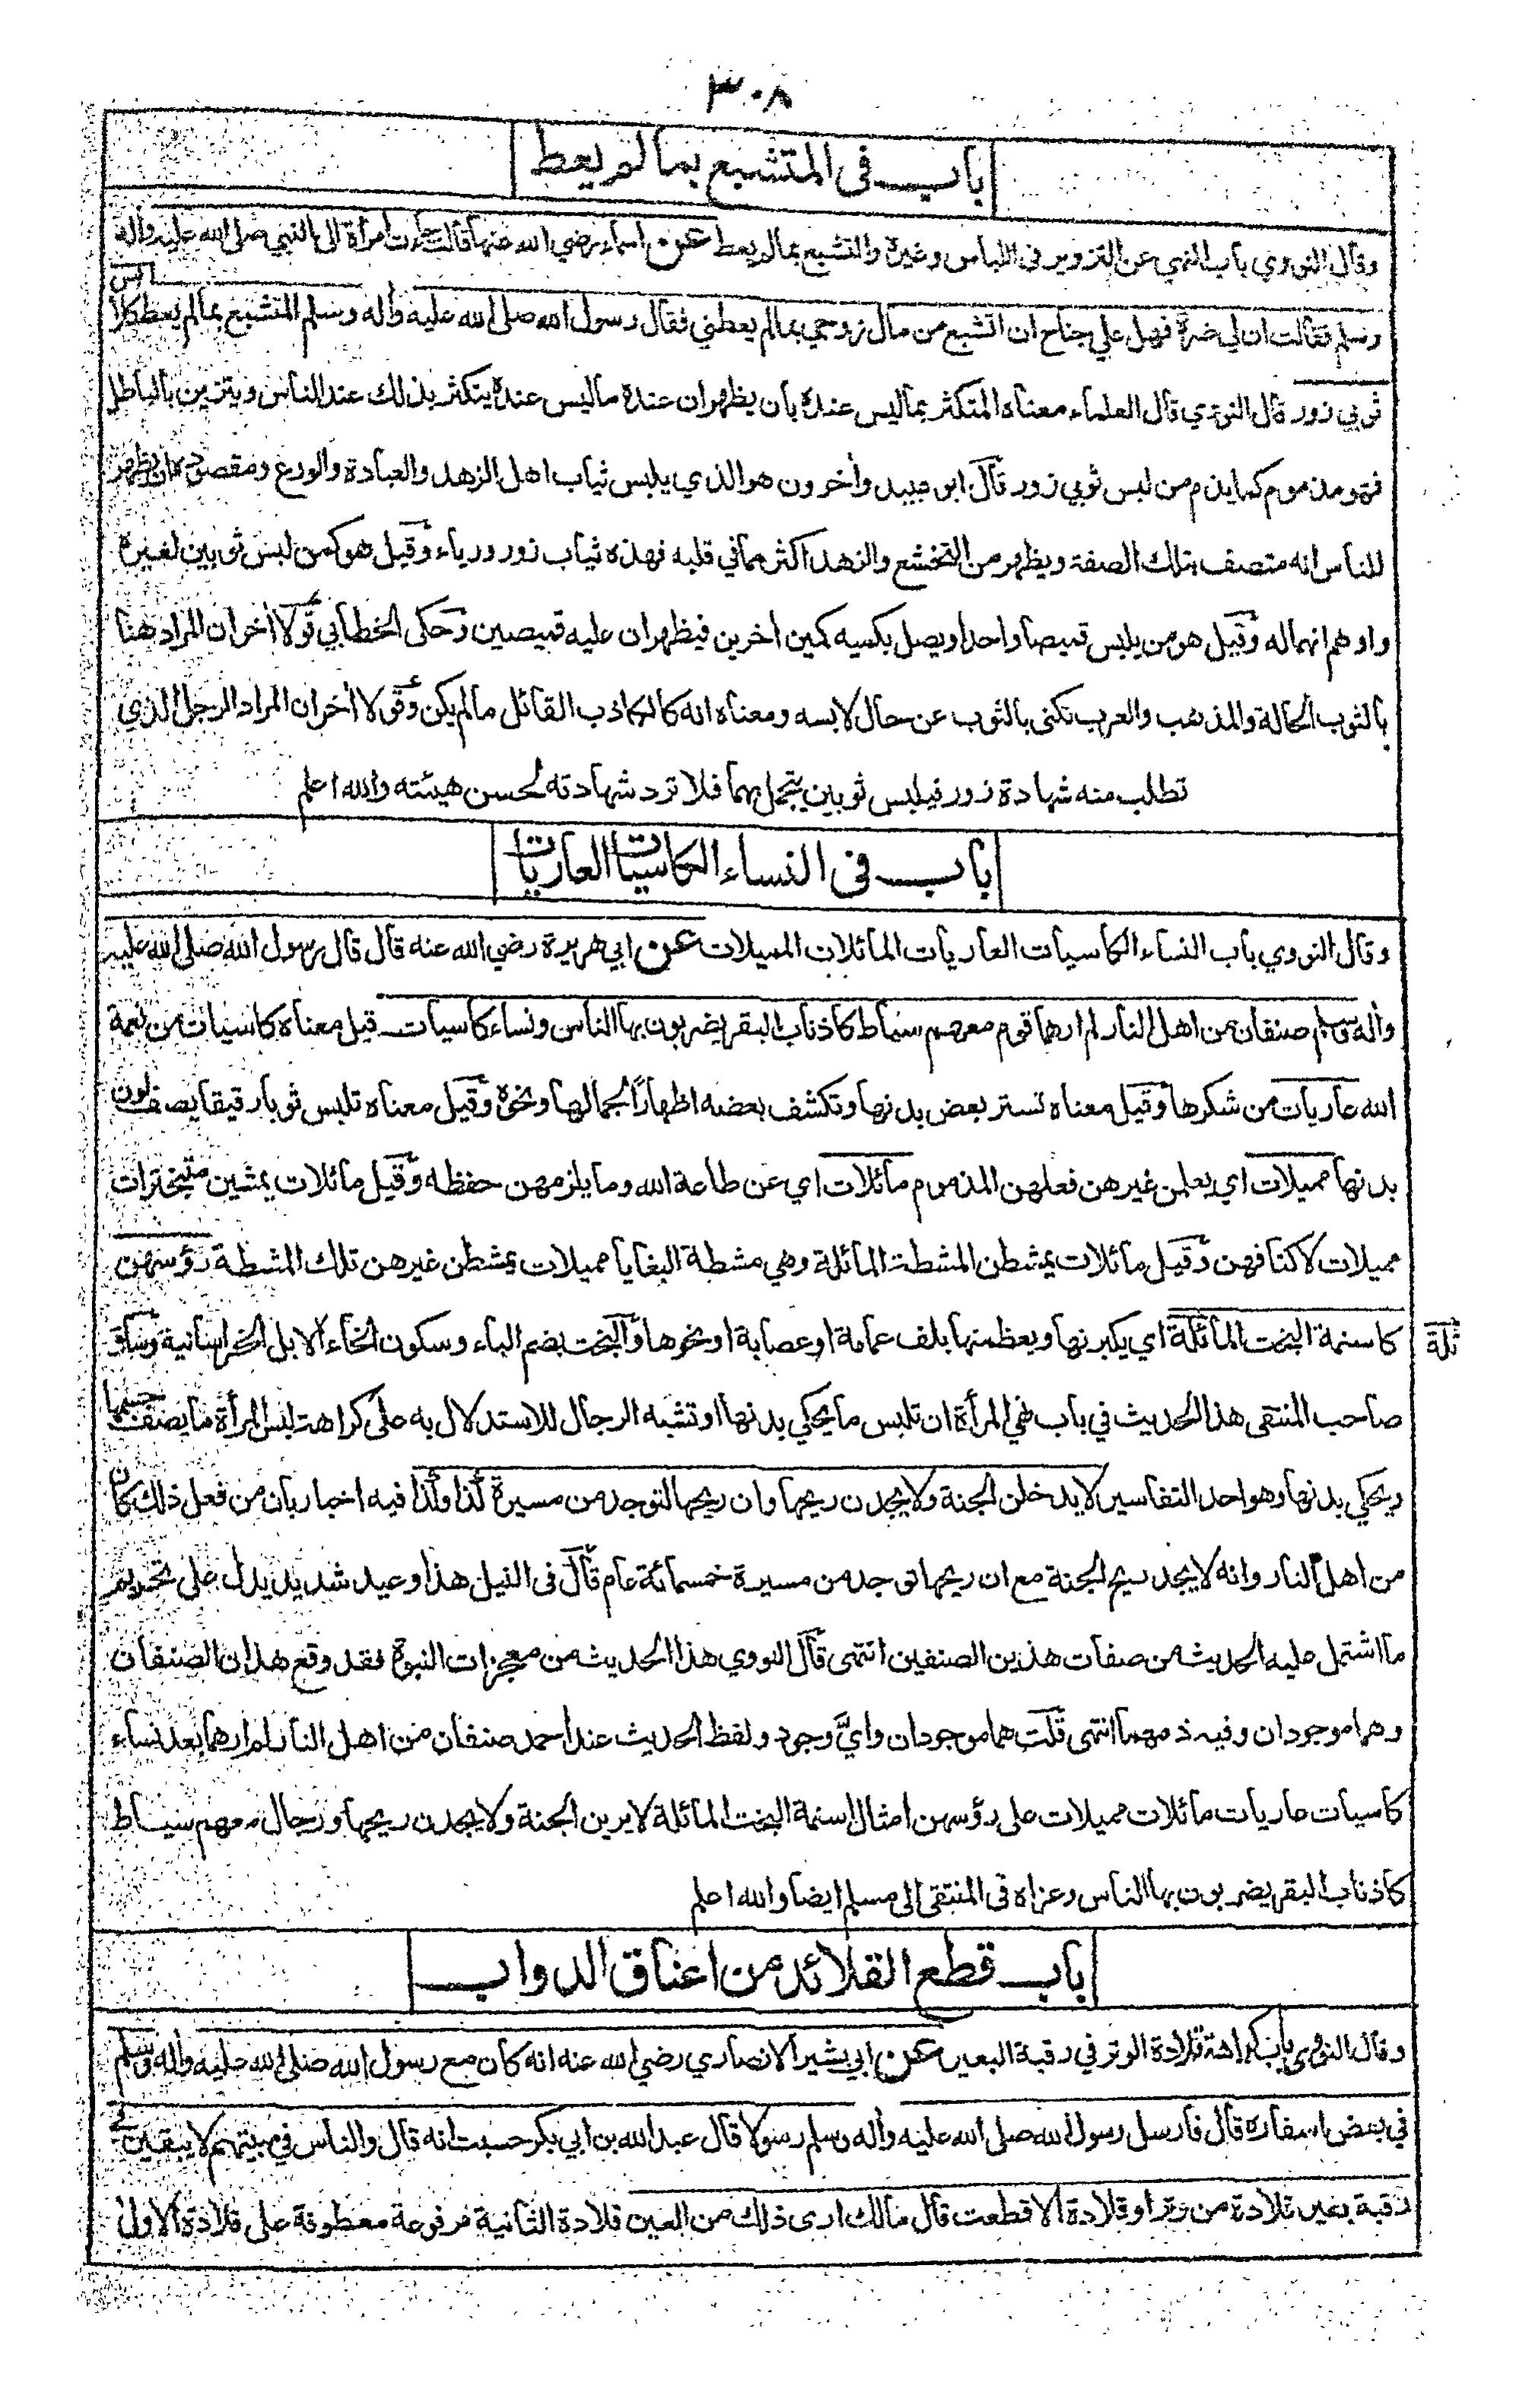 ٣٠٨
باب في المتشبع بما لم يعط
وقال النووي باب النهي عن التزوير في اللباس وغيره والتشبع بما لم يعط عن اسماء رضي الله عنها قالت جاءت امرأة الى النبي صلى الله عليه وأله
وسلم فقالت ان لي ضرة فهل علي جناح ان اتشبع من مال زوجي بما لم يعطني فقال رسول الله صلى الله عليه وأله وسلم المتشبع بما لم يعط كلابس
ثوبي زور قال النووي قال العلماء معناه المتكثر بما ليس عنده بأن يظهر ان عنده ما ليس عنده يتكثر بذلك عند الناس ويتزين بالباطل
فهو مذموم كما يذم من لبس ثوبي زور قال ابو عبيد وأخرون هو الذي يلبس ثياب اهل الزهد والعبادة والورع ومقصوده ان يظهر
للناس انه متصف بتلك الصفة ويظهر من التخشع والزهد اكثر مما في قلبه فهذه ثياب زور ورياء وقيل هو كمن لبس ثوبين لغيره
واوهم انهما له وقيل هو من يلبس قميصا واحدا ويصل بكميه كمين اخرين فيظهر ان عليه قميصين وحكى الخطابي قولا أخر ان المراد هنا
بالثوب الحالة والمذهب والعرب تكنى بالثوب عن حال لابسه ومعناه انه كالكاذب القائل ما لم يكن وقولا أخر ان المراد الرجل الذي
تطلب منه شهادة زور فيلبس ثوبين يتجمل بهما فلا ترد شهادته لحسن هيئته والله اعلم
باب في النساء الكاسيات العاريات
وقال النووي باب النساء الكاسيات العاريات المائلات المميلات عن ابي هريرة رضي الله عنه قال قال رسول الله صلى الله عليه
وأله وسلم صنفان من اهل النار لم ارهما قوم معهم سياط كاذناب البقر يضربون بها الناس ونساء كاسيات قيل معناه كاسيات من نعمة
الله عاريات من شكرها وقيل معناه تستر بعض بدنها وتكشف بعضه اظهاراً لجمالها ونحوه وقيل معناه تلبس ثوبا رقيقا يصف لون
بدنها مميلات اي يعلمن غيرهن فعلهن المذموم مائلات اي عن طاعة الله وما يلزمهن حفظه وقيل مائلات يمشين متبخترات
مميلات لاكتافهن وقيل مائلات يمشطن المشطة المائلة وهي مشطة البغايا مميلات يمشطن غيرهن تلك المشطة رؤسهن
كاسنمة البخت المائلة اي يكبرنها ويعظمنها بلف عمامة او عصابة او نحوها والبخت بضم الباء وسكون الخاء الابل الخراسانية وساق
صاحب المنتقى هذا الحديث في باب نهي المرأة ان تلبس ما يحكي بدنها او تشبه الرجال للاستدلال به على كراهة لبس المرأة ما يصف جسمها
ويحكي بدنها وهو احد التفاسير لا يدخلن الجنة ولا يجدن ريحها وان ريحها لتوجد من مسيرة كذا وكذا فيه اخبار بان من فعل ذلك كان
من اهل النار وانه لا يجد ريح الجنة مع ان ريحها توجد من مسيرة خمسمائة عام قال في النيل هذا وعيد شديد يدل على تحريم
ما اشتمل عليه الحديث من صفات هذين الصنفين انتهى قال النووي هذا الحديث من معجزات النبوة فقد وقع هذان الصنفان
وهما موجودان وفيه ذمهما انتهى قلت هما موجودان وايَّ وجود ولفظ الحديث عند احمد صنفان من اهل النار لم ارهما بعد نساء
كاسيات عاريات مائلات مميلات على رؤسهن امثال اسنمة البخت المائلة لا يرين الجنة ولا يجدن ريحها ورجال معهم سياط
كاذناب البقر يضربون بها الناس وعزاه في المنتقى الى مسلم ايضا والله اعلم
باب قطع القلائد من اعناق الدواب
وقال النووي باب كراهة قلادة الوتر في رقبة البعير عن ابي بشير الانصاري رضي الله عنه انه كان مع رسول الله صلى الله عليه وأله وسلم
في بعض اسفاره قال فارسل رسول الله صلى الله عليه وأله وسلم رسولا قال عبد الله بن ابي بكر حسبت انه قال والناس في مبيتهم لا يبقين في
رقبة بعير قلادة من وتر او قلادة الا قطعت قال مالك ارى ذلك من العين قلادة الثانية مرفوعة معطوفة على قلادة الاول